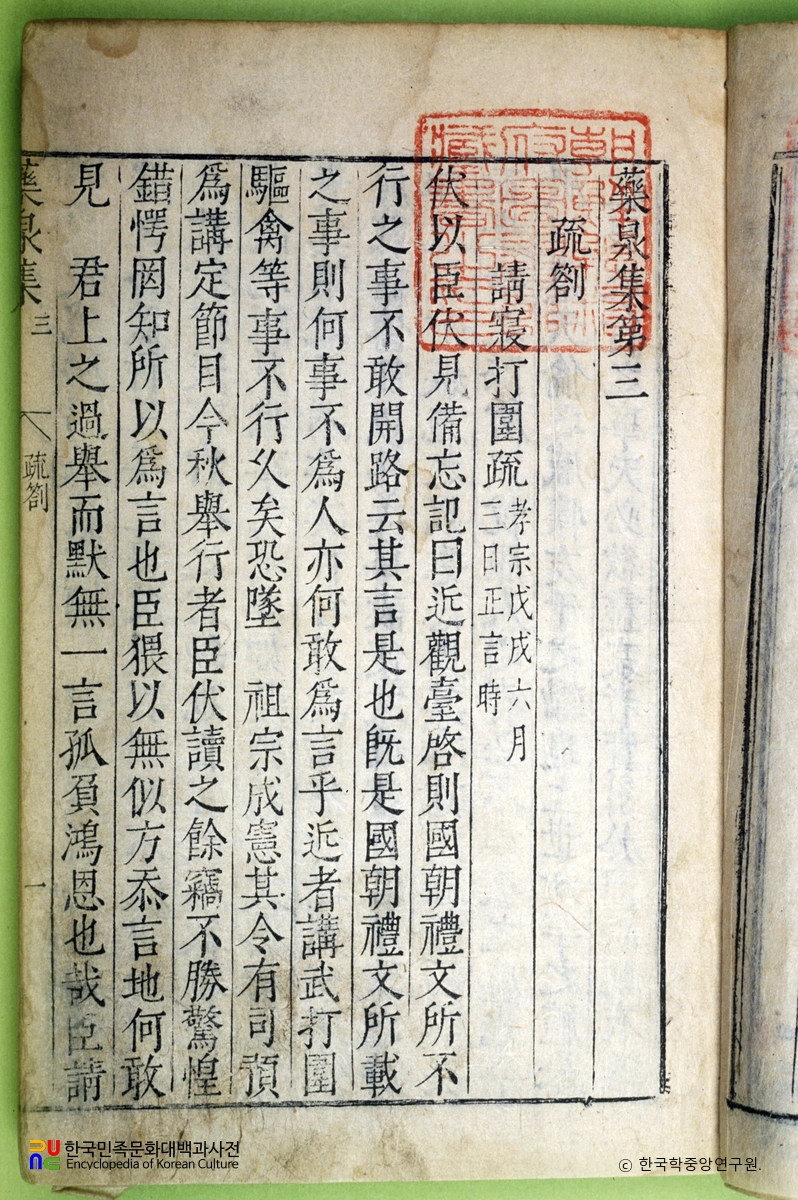 藥泉集第三
疏劄
請寢打圍疏 孝宗戊戌六月
三日正言時
伏以臣伏見備忘記曰近觀臺啓則國朝禮文所不
行之事不敢開路云其言是也旣是國朝禮文所載
之事則何事不爲人亦何敢爲言乎近者講武打圍
驅禽等事不行久矣恐墜 祖宗成憲其令有司預
爲講定節目今秋舉行者臣伏讀之餘竊不勝驚惶
錯愕罔知所以爲言也臣猥以無似方忝言地何敢
見 君上之過舉而默無一言孤負鴻恩也哉臣請
藥泉集 三 疏劄 一
한국민족문화대백과사전
Encyclopedia of Korean Culture
© 한국학중앙연구원.